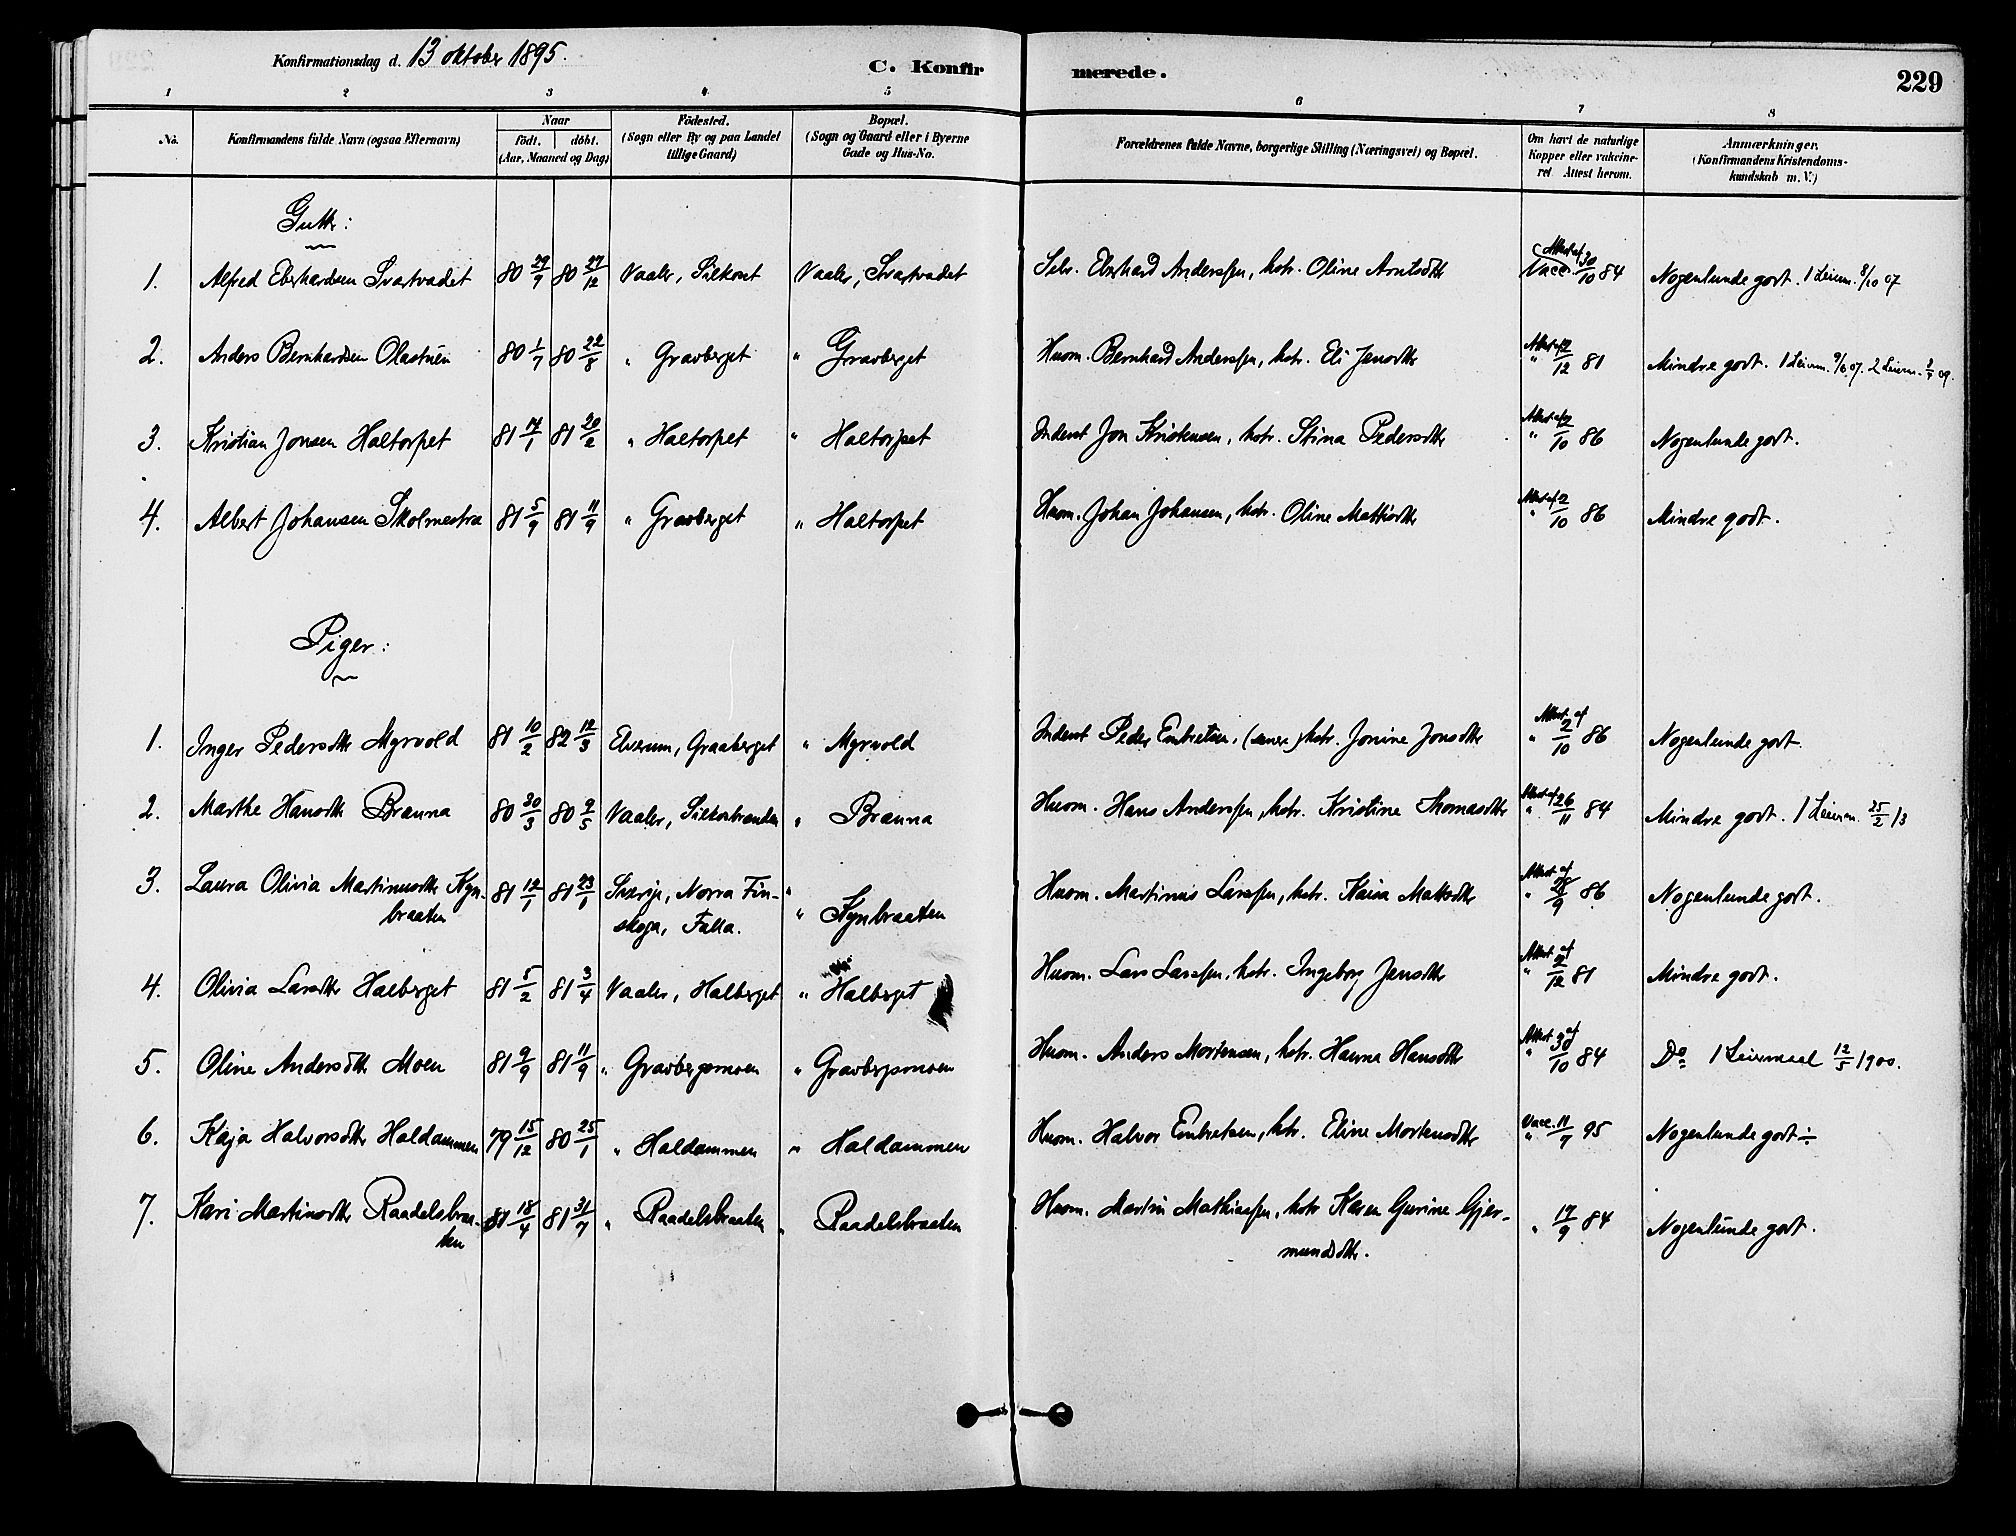 Konfirmationsdag d. 13 oktober 1895.
C. Konfirmerede.
229
1 2 3 4 5 6 7 8
No.
Konfirmandens fulde Navn (ogsaa Efternavn)
Naar
födt. döbt.
(Aar, Maaned og Dag)
Födested.
(Sogn eller By og paa Landet
tillige Gaard)
Bopæl.
(Sogn og Gaard eller i Byerne
Gade og Hus-No.
Forældrenes fulde Navne, borgerlige Stilling (Næringsvei) og Bopæl.
Om havt de naturlige
Kopper eller vakcine-
ret Attest herom.
Anmærkninger.
(Konfirmandens Kristendoms-
kundskab m. V.)
Gutter:
1. Alfred Eberhardsen Svartvadet 80 29/9 80 27/12 Vaaler, Silkont Vaaler, Svartvadet Selv. Eberhard Anderssen, hstr. Oline Arnitsdtr Attest af Vacc. 30/10 84 Nogenlunde godt. 1 Leierm. 8/10 07
2. Anders Bernhardsen Olastuen 80 1/7 80 22/8 " Gravberget " Gravberget Husm. Bernhard Anderssen, hstr. Eli Jensdtr Attest af " 12/12 81 Mindre godt. 1 Leierm. 9/6 07. 2 Leierm. 3/7 09.
3. Kristian Jonsen Haltorpet 81 14/1 81 20/2 " Haltorpet " Haltorpet Inderst Jon Kristensen, hstr. Stina Pedersdtr Attest af " 2/10 86 Nogenlunde godt.
4. Albert Johansen Skolmestra 81 5/9 81 11/9 " Gravberget " Haltorpet Husm. Johan Johansen, hstr. Oline Mattisdtr Attest af " 2/10 86 Mindre godt.
Piger:
1. Inger Pedersdtr Myrvold 81 10/2 82 12/3 Elverum, Graaberget " Myrvold Inderst Peder Embretsen, hstr. Jonine Jonsdtr Attest af " 2/10 86 Nogenlunde godt.
2. Marthe Hansdtr Brænna 80 30/3 80 9/5 Vaaler, Silkosbrænden " Brænna Husm. Hans Anderssen, hstr. Kristine Thomasdtr Attest af " 26/11 84 Mindre godt. 1 Leierm. 25/2 13
3. Laura Olivia Martinusdtr Kyn- 81 12/1 81 23/1 Sverije, Norra Fin- " Husm. Martinus Larssen, hstr. Kaisa Matsdtr Attest af " 28/9 86 Nogenlunde godt.
braaten skoga, Falla. " Kynbraaten
4. Olivia Larsdtr Halberget 81 5/2 81 3/4 Vaaler, Halberget " Halberget Husm. Lars Larssen, hstr. Ingeborg Jensdtr Attest af " 2/12 81 Mindre godt.
5. Oline Andersdtr Moen 81 9/9 81 11/9 " Gravbergsmoen " Gravbergsmoen Husm. Anders Mortensen, hstr. Hanna Hansdtr Attest af " 30/10 84 Do 1 Leiermaal 12/5 1900.
6. Kaja Halvorsdtr Haldammen 79 15/12 80 25/1 " Haldammen " Haldammen Husm. Halvor Embretsen, hstr. Eline Mortensdtr Vacc. " 11/7 95 Nogenlunde godt ÷
7. Kari Martinsdtr Raadelsbraa- 81 18/4 81 31/7 " Raadelsbraaten " Raadelsbraaten Husm. Martin Mathiassen, hstr Karen Gurine Gjer- " 17/9 84 Nogenlunde godt.
ten mundsdtr.